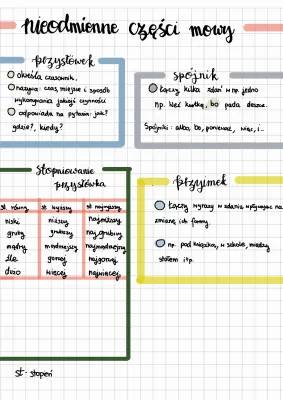 nieodmienne części mowy
przysłówek
określa czasownik.
nazywa czas, miejsce i sposób
wykonywania jakiejś czynności
odpowiada na pytania: jak?
gdzie?, kiedy?
spójnik
łączy kilka zdań w np. jedno
np. weź kurtkę, bo pada deszcz.
Spójniki: albo, bo, ponieważ, więc, i...
stopniowanie
przysłówka
st. równy st. wyższy st. najwyższy
niski niższy najniższy
gruby grubszy najgrubszy
mądry mądrzejszy najmądrzejszy
źle gorzej najgorzej
dużo więcej najwięcej
przyimek
łączy wyrazy w zdania wpływając na
zmianę ich formy
np. pod książką, w szkole, między
stołem itp.
st - stopień